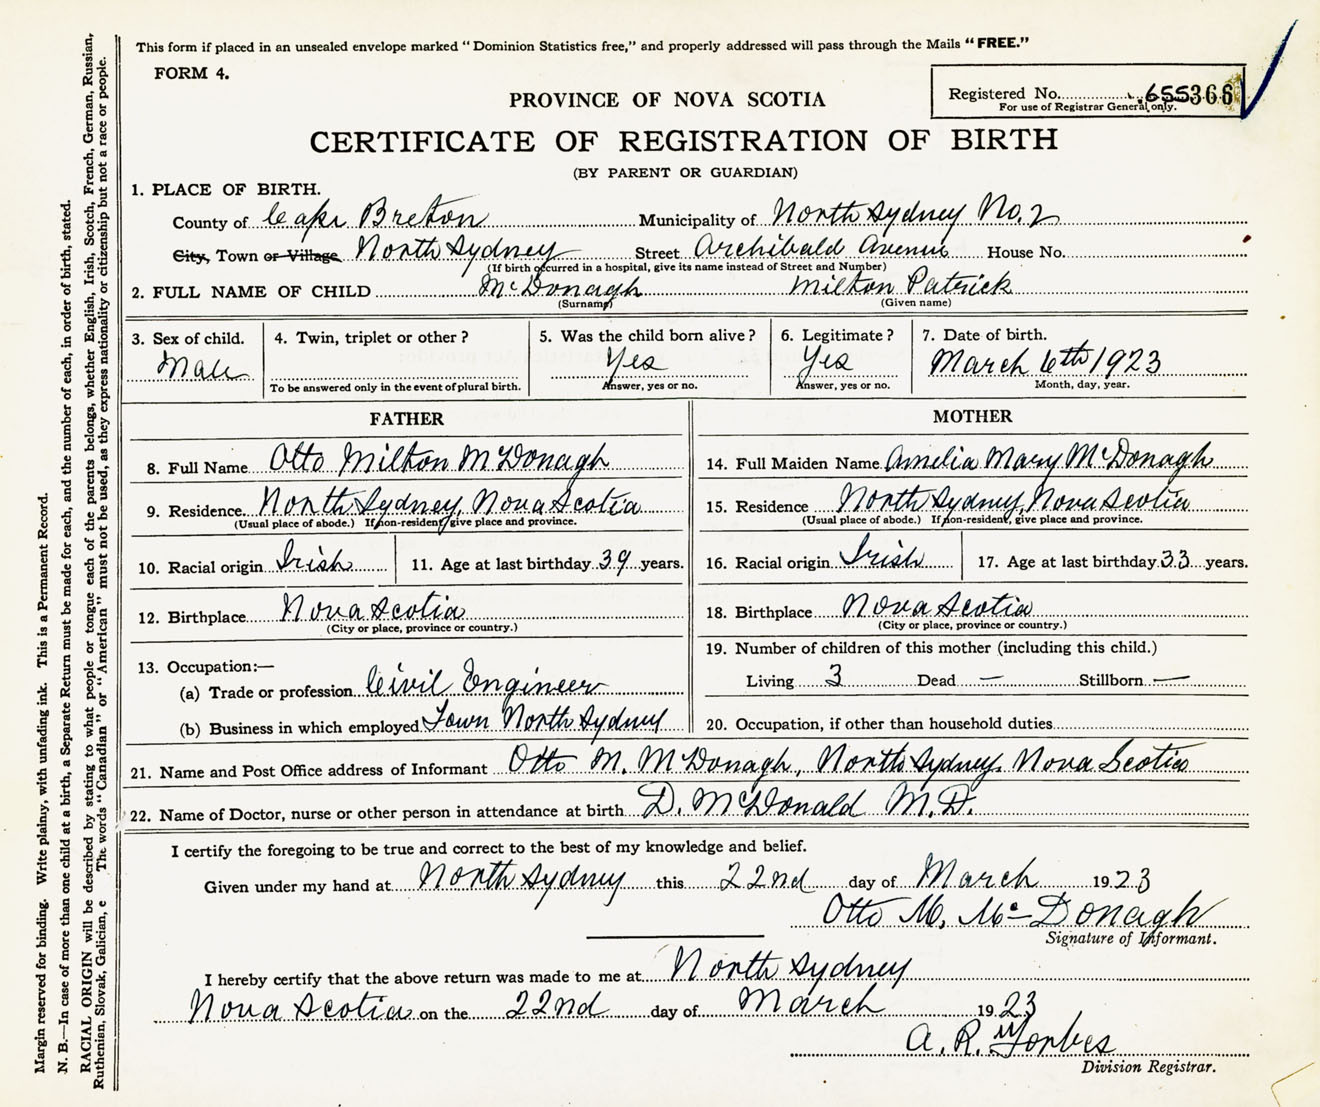 This form if placed in an unsealed envelope marked "Dominion Statistics free," and properly addressed will pass through the Mails "FREE."
FORM 4.
Registered No. 655366
For use of Registrar General only.
PROVINCE OF NOVA SCOTIA
CERTIFICATE OF REGISTRATION OF BIRTH
(BY PARENT OR GUARDIAN)
1. PLACE OF BIRTH.
County of Cape Breton Municipality of North Sydney No. 2
City, Town or Village North Sydney Street Archibald Avenue House No.
(If birth occurred in a hospital, give its name instead of Street and Number)
2. FULL NAME OF CHILD McDonagh Milton Patrick
(Surname) (Given name)
3. Sex of child. 4. Twin, triplet or other? 5. Was the child born alive? 6. Legitimate? 7. Date of birth.
Male Yes Yes March 6th 1923
To be answered only in the event of plural birth. Answer, yes or no. Answer, yes or no. Month, day, year.
FATHER
8. Full Name Otto Milton McDonagh
9. Residence North Sydney, Nova Scotia
(Usual place of abode.) If non-resident, give place and province.
10. Racial origin Irish 11. Age at last birthday 39 years.
12. Birthplace Nova Scotia
(City or place, province or country.)
13. Occupation:—
(a) Trade or profession Civil Engineer
(b) Business in which employed Town North Sydney
MOTHER
14. Full Maiden Name Amelia Mary McDonagh
15. Residence North Sydney, Nova Scotia
(Usual place of abode.) If non-resident, give place and province.
16. Racial origin Irish 17. Age at last birthday 33 years.
18. Birthplace Nova Scotia
(City or place, province or country.)
19. Number of children of this mother (including this child.)
Living 3 Dead — Stillborn —
20. Occupation, if other than household duties
21. Name and Post Office address of Informant Otto M. McDonagh, North Sydney, Nova Scotia
22. Name of Doctor, nurse or other person in attendance at birth D. McDonald M.D.
I certify the foregoing to be true and correct to the best of my knowledge and belief.
Given under my hand at North Sydney this 22nd day of March 1923
Otto M. McDonagh
Signature of Informant.
I hereby certify that the above return was made to me at North Sydney
Nova Scotia on the 22nd day of March 1923
A. R. Forbes
Division Registrar.
Margin reserved for binding. Write plainly, with unfading ink. This is a Permanent Record.
N. B.—In case of more than one child at a birth, a Separate Return must be made for each, and the number of each, in order of birth, stated.
RACIAL ORIGIN will be described by stating to what people or tongue each of the parents belongs, whether English, Irish, Scotch, French, German, Russian,
Ruthenian, Slovak, Galician, e The words "Canadian" or "American" must not be used, as they express nationality or citizenship but not a race or people.